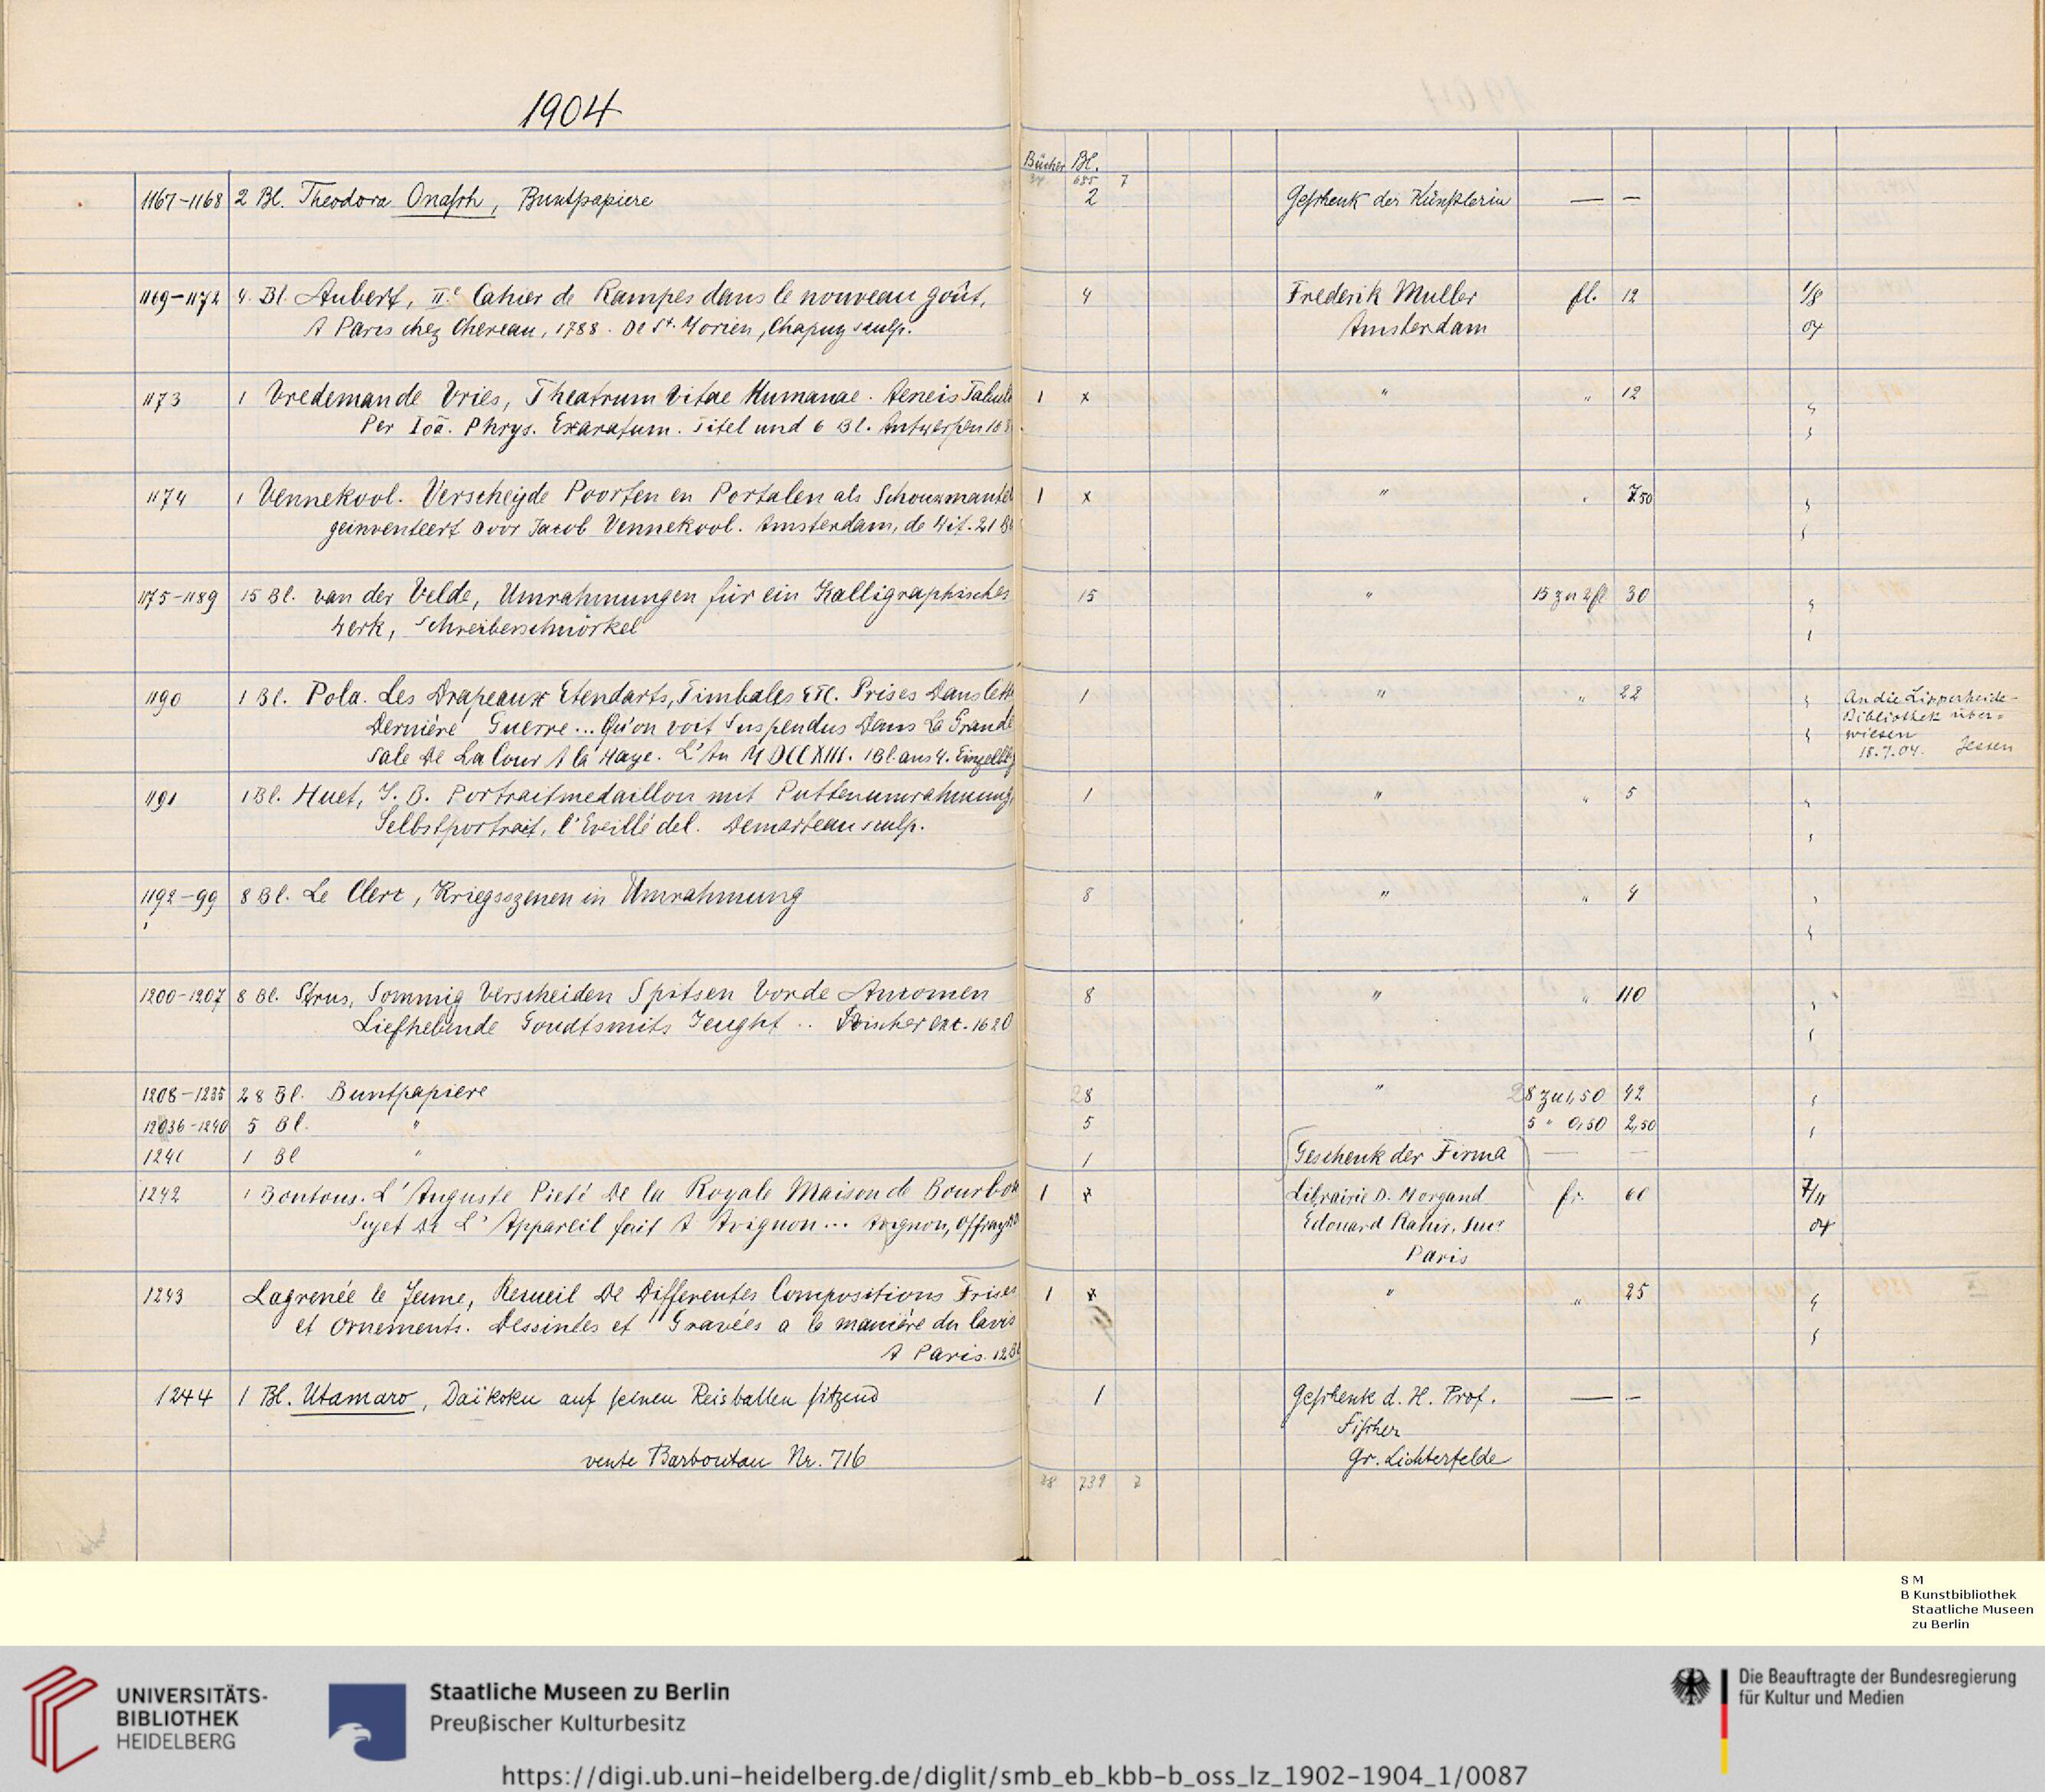 1904
Bücher Bl.
34 685 7
1167-1168 2 Bl. Theodora Onasch, Buntpapiere 2 Geschenk der Künstlerin — —
1169-1172 4. Bl. Aubert, II.e Cahier de Rampes dans le nouveau goût, 4 Frederik Muller fl. 12 1/8
A Paris chez Chereau, 1788. De St. Morien, Chapuy sculp. Amsterdam 04
1173 1 Vredemande Vries, Theatrum Vitae Humanae. Aeneis Tabulis 1 x " " 12
Per Ioã. Phrys. Exaratum. Titel und 6 Bl. Antwerpen
1174 1 Vennekool. Verscheyde Poorten en Portalen als Schouwmantel 1 x " " 7.50
geinventeert door Jacob Vennekool. Amsterdam, de Wit. 21 Bl
1175-1189 15 Bl. van der Velde, Umrahmungen für ein Kalligraphisches 15 " 15 zu 2 fl 30
Werk, Schreiberschnörkel
1190 1 Bl. Pola. Les Drapeaux Etendarts, Timbales etc. Prises Dans Cette 1 " " 22 An die Lipperheide-
Dernière Guerre... Qu'on voit Suspendus Dans La Grande Bibliothek über=
Sale De La Cour A la Haye. L'An MDCCXIII. 1 Bl. aus 4. Einzelbl wiesen
18.7.04. Jessen
1191 1 Bl. Huet, J. B. Portraitmedaillon mit Puttenumrahmung, 1 " " 5
Selbstportrait, l'Eveillé del. Demarteau sculp.
1192-99 8 Bl. Le Clerc, Kriegsszenen in Umrahmung 8 " " 4
1200-1207 8 Bl. Strus, Sommig Verscheiden Spitsen Vorde Ancomen 8 " " 110
Liefhebende Goudtsmits Jeught .. Visscher exc. 1620
1208-1235 28 Bl. Buntpapiere 28 " 28 zu 1,50 42
1236-1240 5 Bl. " 5 5 " 0,50 2,50
1241 1 Bl " 1 Geschenk der Firma — —
1242 1 Bontous. L'Auguste Pieté De la Royale Maison de Bourbon 1 x Librairie D. Morgand fr. 60 7/11
Sujet De L'Appareil fait A Avignon... Avignon, Offray Edouard Rahir, Sucr 04
Paris
1243 Lagrenée le Jeune, Recueil De Differentes Compositions Frises 1 x " " 25
et Ornements. Dessinées et Gravées a la manière du lavis
A Paris. 12 Bl
1244 1 Bl. Utamaro, Daïkoku auf seinen Reisballen sitzend 1 Geschenk d. H. Prof. — —
Fischer
vente Barboutau Nr. 716 Gr. Lichterfelde
38 739 7
S M
B Kunstbibliothek
Staatliche Museen
zu Berlin
UNIVERSITÄTS-
BIBLIOTHEK
HEIDELBERG
Staatliche Museen zu Berlin
Preußischer Kulturbesitz
Die Beauftragte der Bundesregierung
für Kultur und Medien
https://digi.ub.uni-heidelberg.de/diglit/smb_eb_kbb-b_oss_lz_1902-1904_1/0087